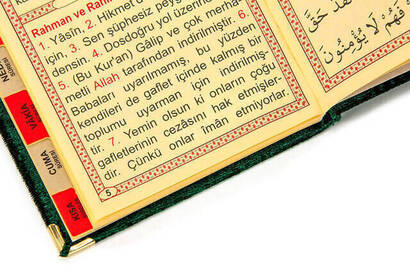 Rahman ve Rahî
1. Yâsîn. 2. Hikmet d
için, 3. Sen şüphesiz peyg
densin. 4. Dosdoğru yol üzerin
5. (Bu Kur'an) Gâlip ve çok merha
metli Allah tarafından indirilmiştir. 6.
Babaları uyarılmamış, bu yüzden
kendileri de gaflet içinde kalmış bir
toplumu uyarman için indirilmiş-
tir. 7. Yemin olsun ki onların çoğu
gafletlerinin cezasını hak etmişler-
dir. Çünkü onlar îmân etmiyorlar.
5
VÂKIA
SÛRESİ
CUMA
SÛRESİ
KISA
فَهُمْ لَا يُؤْمِنُونَ